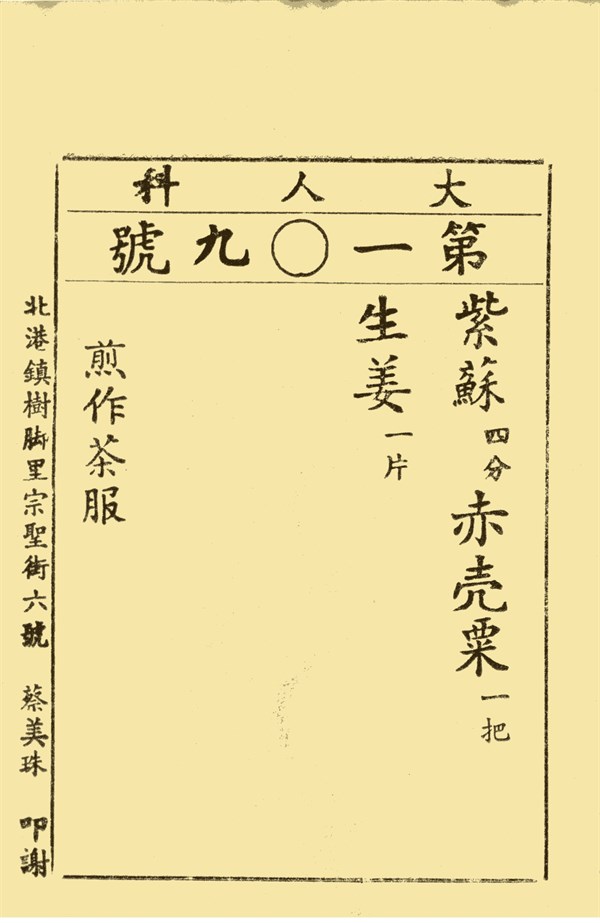 大人科
第一〇九號
紫蘇四分赤壳粟一把
生姜一片
煎作茶服
北港鎮樹脚里宗聖街六號 蔡美珠 叩謝